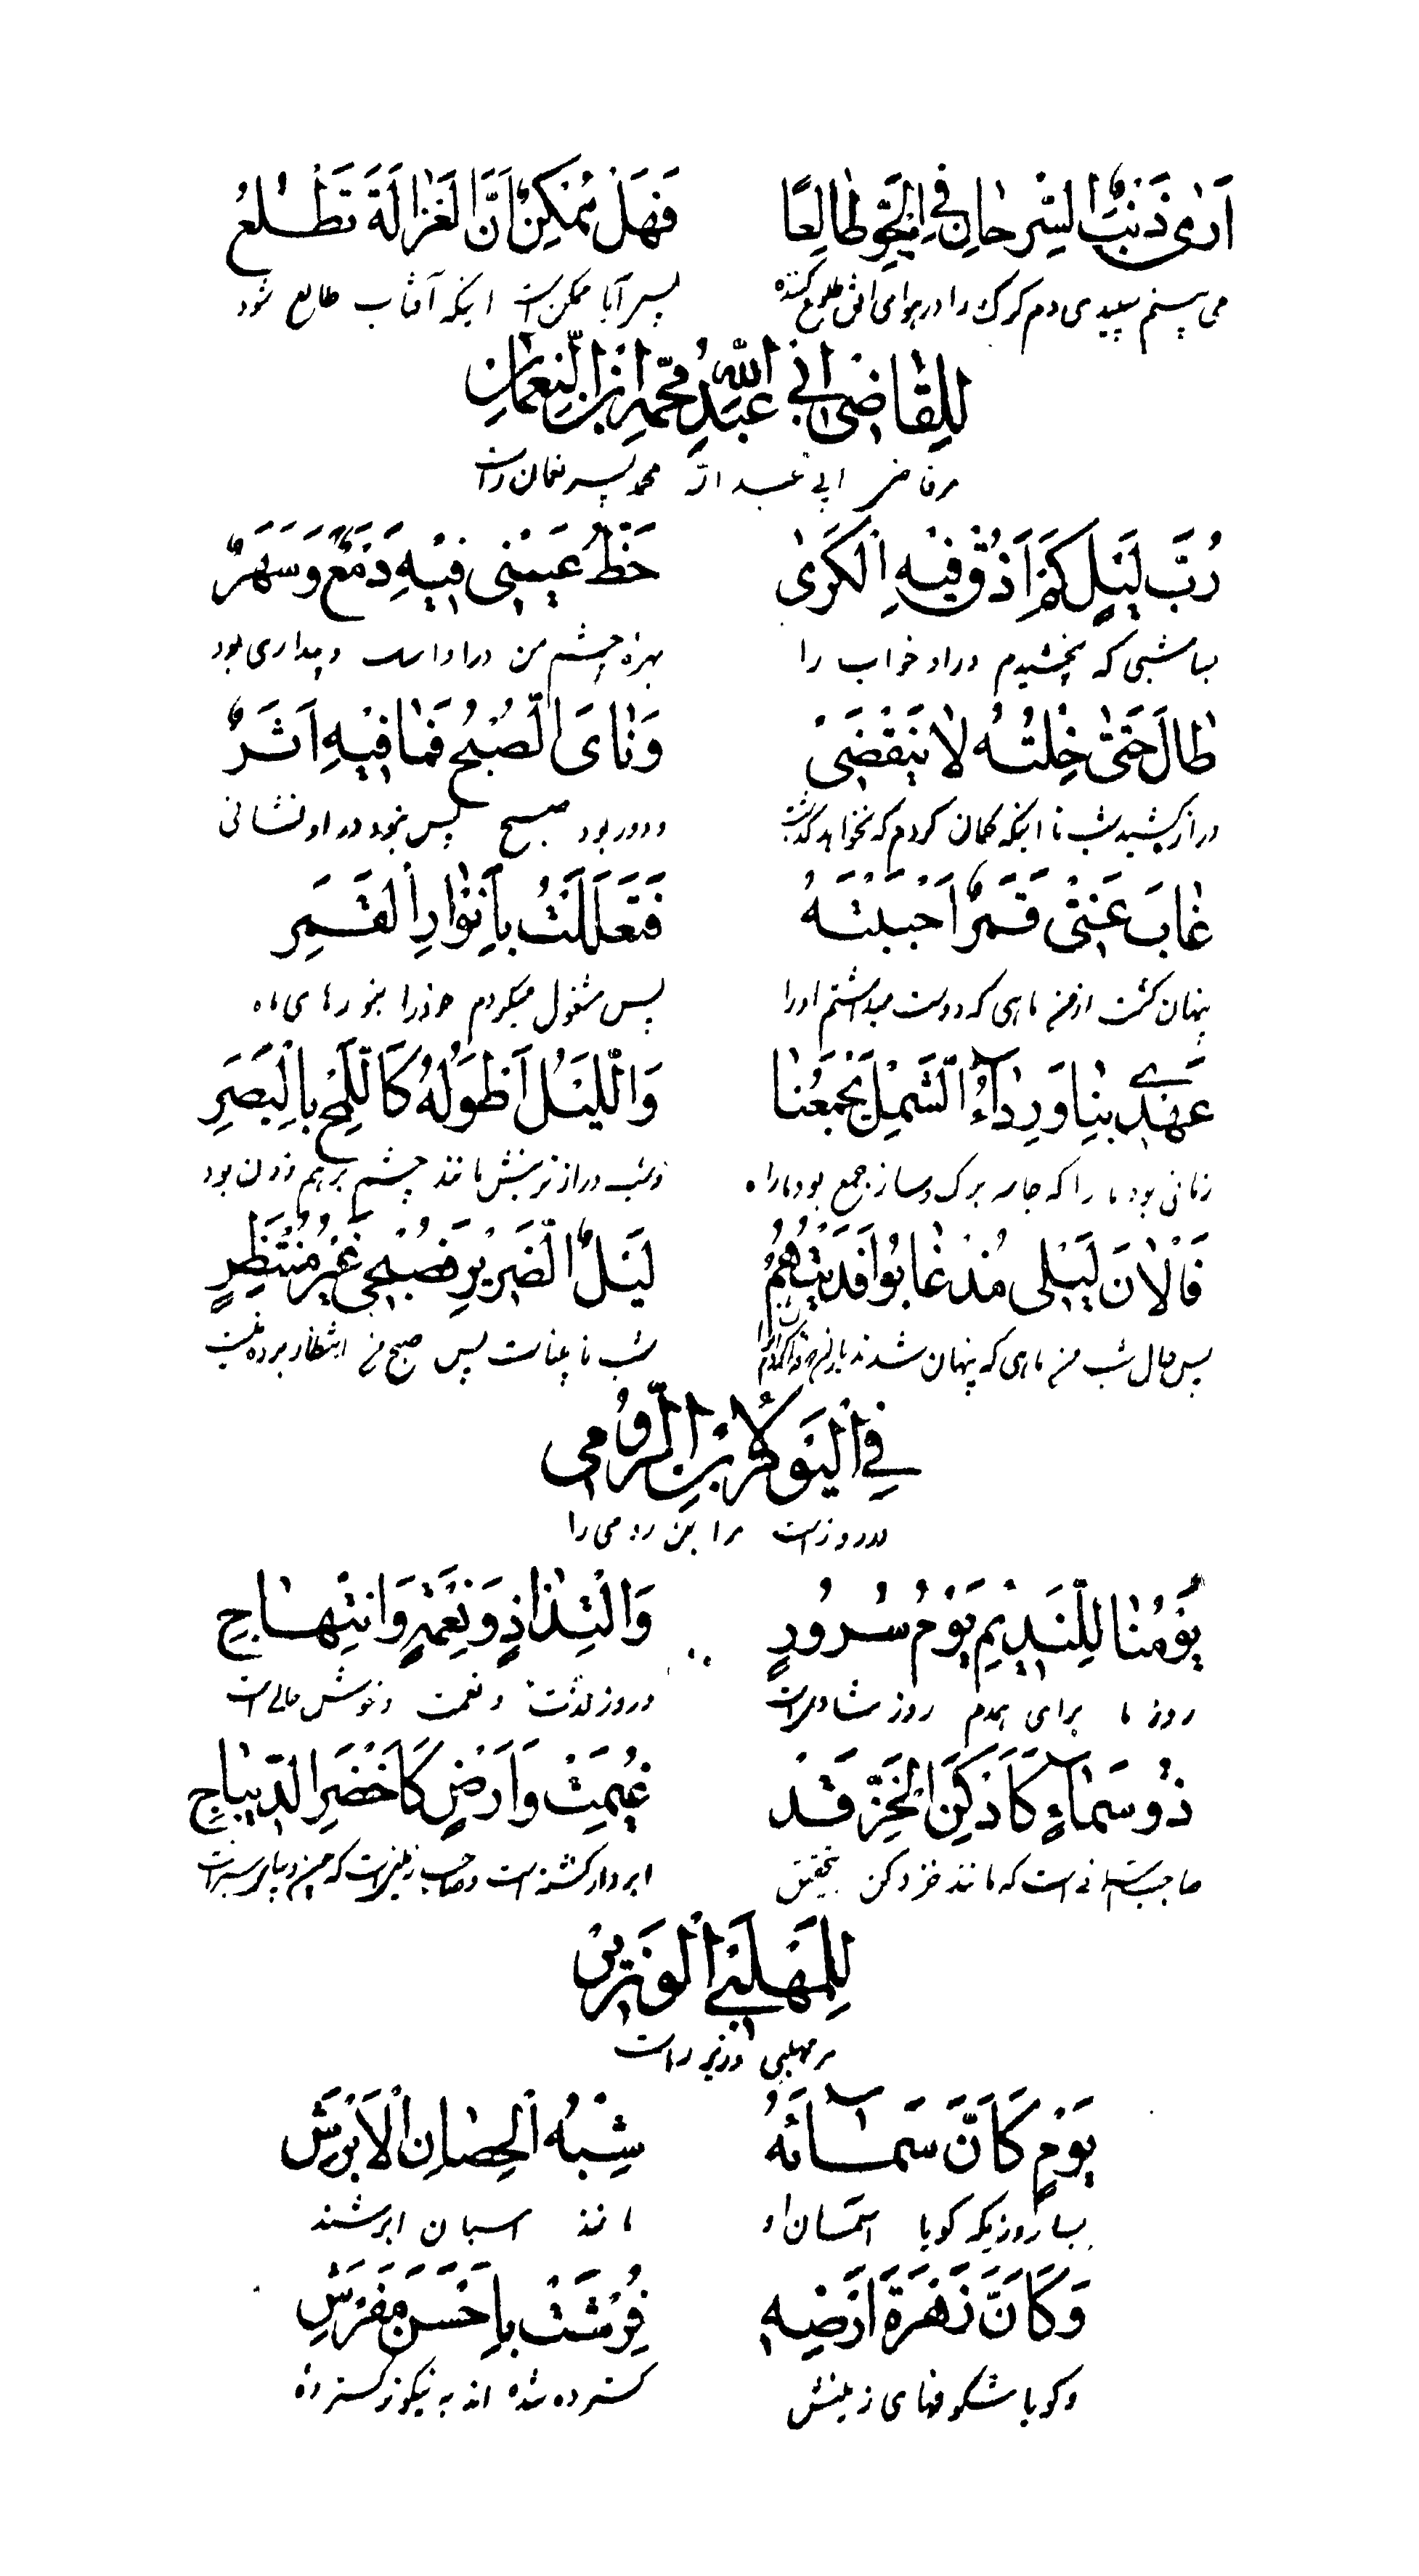 اَرىٰ ذَنَبَ السِّرحٰانِ فِي الجَوِّ طٰالِعًا فَهَلْ مُمْكِنٌ اَنَّ الغَزٰالَةَ تَطْلَعُ
می بینم سپیدی دم کرک را در هوای افق طلوع کننده پس آیا ممکن است اینکه آفتاب طالع شود
لِلقٰاضى اَبي عَبدِ اللّٰه مُحَمَّدِ ابْنِ النُّعمٰانِ
مر قاضی ابی عبد الله محمد پسر نعمان راست
رُبَّ لَيَلٍ لَمْ اَذُقْ فيٖهِ الكَرَىٰ حَظُّ عَيْنٖي فيٖهِ دَمْعٌ وَسَهَرٌ
بسا شبی که نچشیدم در او خواب را بهرهٔ چشم من در او اشک و بیداری بود
طٰالَ حَتّىٰ خِلْتُهُ لٰا يَنْقَضٖي وَنٰاىَ الصُّبْحُ فَمٰا فيٖهِ اَثَرٌ
دراز کشید شب تا اینکه کمان کردم که نخواهد گذشت و دور بود صبح پس نبود در او نشانی
غٰابَ عَنّٖي قَمَرٌ اَحْبَبْتَهُ فَتَعَلَلَّتُ بِاَنْوٰارِ الْقَمَرِ
پنهان گشت از من ماهی که دوست میداشتم او را پس مشغول میکردم خود را بنورهای ماه
عَهْدٖي بِنٰا وَرِدٰآءُ الشَّمْلِ يَجْمَعُنٰا وَالْلَيْلُ اَطْوَلُهُ كَاللَّمْحِ بِالْبَصَرِ
زمانی بود ما را که جامه برک و ساز جمع بود ما را و شب درازترینش مانند چشم بر هم زدن بود
فَالْاٰنَ لَيْلٖى مُذْ غٰابُوا فَدَيْتُهُمُ لَيْلُ الضَّرٖيْرِ فَصُبْحٖي غَيْرُ مُنْتَظِرٍ
پس حال شب من ماهی که پنهان شدند شب نابیناست پس صبح من انتظار برده نیست
فِي الْيَوْمِ لِابْنِ الرُّوْمٖي
در روز است مر ابن رومی را
يَوْمُنٰا لِلنَّدٖيْمِ يَوْمُ سُرُورٍ وَالْتِذٰاذٍ وَنِعْمَةٍ وَابْتِهٰاجِ
روز ما برای همدم روز شادی است و روز لذت و نعمت و خوش حالی است
ذُو سَمٰآءٍ كَاَدْكَنِ الْخَزِّ قَدْ غُيِمَتْ وَاَرْضٍ كَاَخْضَرِ الدّيبٰاجِ
صاحب آسمانی است که مانند خز دکن بتحقیق ابردار گشته است و صاحب زمینی است که چون دیبای سبز است
لِلْمُهَلَّبٖي الْوَزٖيْرِ
مر مهلبی وزیر راست
يَوْمٍ كَاَنَّ سَمٰآئَهُ شِبْهُ الْحِصٰانِ الْاَبْرَشَ
بسا روزیکه کویا آسمان او مانند اسبان ابرشند
وَكَاَنَّ زَهْرَةَ اَرْضِهٖ فُرِشَتْ بِاَحْسَنِ مَفْرَشِ
و کویا شکوفهای زمینش کسترده شده اند به نیکوتر کسترده